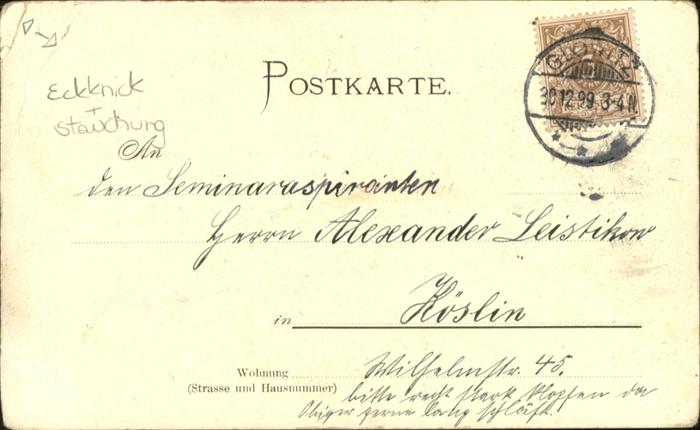 POSTKARTE.
GLOWITZ
30.12.99. 3-4 N.
Eckknick
+
Stauchung
An
den Seminaraspiranten
Herrn Alexander Leistikow
in Köslin
Wohnung Wilhelmstr. 45.
(Strasse und Hausnummer) bitte recht stark klopfen da
Obiger gerne lang schläft.